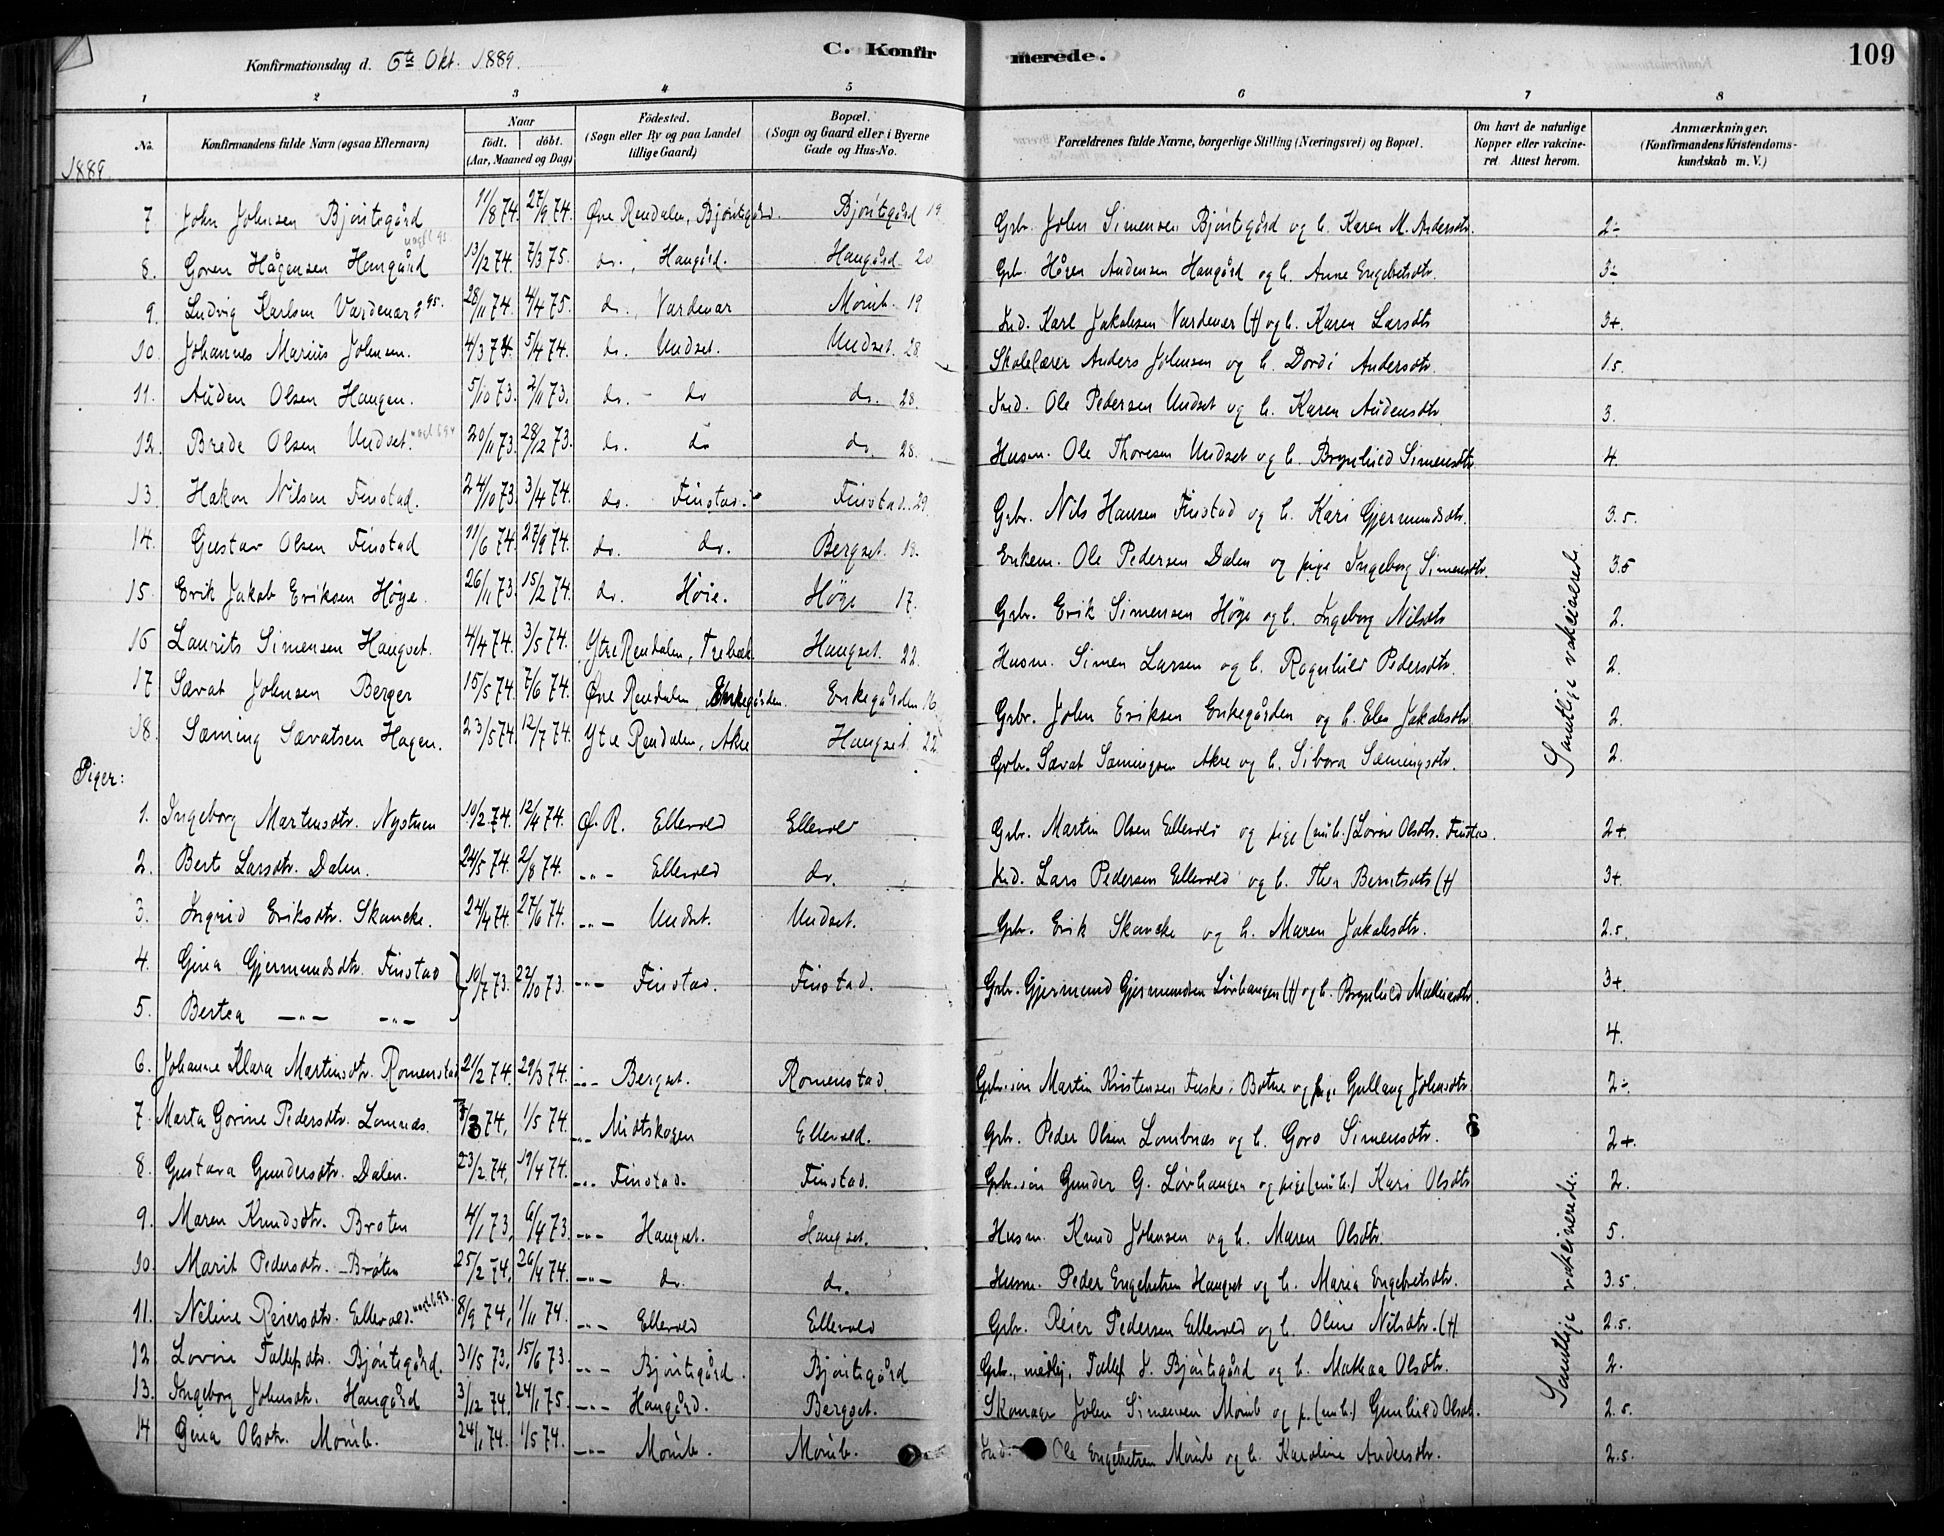 C. Konfirmerede.
109
Konfirmationsdag d. 6te Okt. 1889.
1 2 3 4 5 6 7 8
No. Konfirmandens fulde Navn (ogsaa Efternavn) Naar født. døbt. (Aar, Maaned og Dag) Fødested. (Sogn eller By og paa Landet tillige Gaard) Bopæl. (Sogn og Gaard eller i Byerne Gade og Hus-No. Forældrenes fulde Navne, borgerlige Stilling (Næringsvei) og Bopæl. Om havt de naturlige Kopper eller vakcineret Attest herom. Anmærkninger. (Konfirmandens Kristendomskundskab m. V.)
1889.
7. John Johnsen Björitsgård 11/8 74. 27/9 74. Øvre Rendalen, Björitsgård. Björitsgård 19 Grbr. John Simensen Björitsgård og h. Karen M. Andersdtr. 2÷
8. Goren Hågensen Haugård 13/12 74. 7/3 75. do., Haugård. Haugård 20 Grb. Hågen Audensen Haugård og h. Anne Engebretsdtr. 3÷
9. Ludvig Karlsen Vardenær 95. 28/11 74. 4/4 75. do., Vardenær Momb. 19 Ind. Karl Jakobsen Vardenær (†) og h. Karen Larsdtr 3+
10. Johannes Marius Johnsen. 4/3 74. 5/4 74. do. Undset. Undset. 28 Skolelærer Anders Johnsen og h. Dordi Andersdtr. 1.5.
11. Auden Olsen Haugen. 5/10 73. 2/11 73. do. - do do. 28. Ind. Ole Pedersen Undset og h. Karen Audensdtr 3.
12. Brede Olsen Undset. 20/11 73. 28/12 73. do. do do. 28. Husm. Ole Thoresen Undset og h. Brynhild Simensdtr 4.
13. Hakon Nilsen Finstad. 24/10 73. 3/4 74. do. Finstad. Finstad. 29. Grbr. Nils Hansen Finstad og h. Kari Gjermundsdtr. 3.5.
14. Gustav Olsen Finstad 11/6 74. 27/9 74. do. do. Bergset. 18. Enkem. Ole Pedersen Dalen og pige Ingeborg Simensdtr. 3.5
15. Erik Jakob Eriksen Høye. 26/11 73. 15/2 74. do. Høie. Høye 17. Grbr. Erik Simensen Høye og h. Ingeborg Nilsdtr 2.
16 Laurits Simensen Haugset. 4/4 74. 3/5 74. Ytre Rendalen, Trebæk. Haugset. 22. Husm. Simen Larsen og h. Ragnhild Pedersdtr. 2.
17 Sævat Johnsen Berger 15/5 74. 7/6 74. Øvre Rendalen, Enkegården. Enkegården 16 Grbr. John Eriksen Enkegården og h. Eles Jakobsdtr 2.
18. Sæming Sævatsen Hagen. 23/5 74. 12/7 74. Ytre Rendalen, Akre Haugset. 22. Grbr. Sævat Sæmingsen Akre og h. Sibora Sæmingsdtr. 2.
Samtlige vakcinerede.
Piger:
1. Ingeborg Martensdtr. Nystuen 10/2 74. 12/4 74. Ø. R. Ellevold Ellevold Grbr. Martin Olsen Ellevold og pige (nu h.) Lovise Olsdtr. Finstad. 2+
2. Berit Larsdtr. Dalen. 24/5 74. 2/8 74. -"- Ellevold do. Ind. Lars Pedersen Ellevold og h. Thea Berntsdtr (†) 3+
3. Ingrid Eriksdtr. Skancke. 24/4 74. 27/6 74. -"- Undset. Undset. Grbr. Erik Skancke og h. Maren Jakobsdtr. 2.5.
4. Gina Gjermundsdtr. Finstad 10/7 73. 22/10 73. -"- Finstad. Finstad. Grbr. Gjermund Gjermundsen Lørhaugen (†) og h. Brynhild Mathiasdtr. 3+.
5. Bertea -"- -"- 4.
6. Johanne Klara Martinsdtr. Romenstad 21/2 74. 29/3 74. -"- Bergset. Romenstad. Grbr.søn Martin Kristensen Fuske i Botne og pige Gullaug Johnsdtr. 2÷
7. Marta Gorine Pedersdtr. Lomnæs. /3 74. 1/5 74. -"- Midtskogen Ellevold. Grbr. Peder Olsen Lombnæs og h. Goro Simensdtr. 2+.
8. Gustava Gundersdtr. Dalen. 23/2 74. 19/4 74. -"- Finstad. Finstad. Grbr.søn Gunder G. Lørhaugen og pige (nu h.) Kari Olsdtr 2.
9. Maren Knudsdtr. Broten 4/1 73. 6/4 73. -"- Haugset. Haugset. Husm. Knud Johnsen og h. Maren Olsdtr. 5.
10. Marit Pedersdtr. Bröten 25/2 74. 26/4 74. -"- do. do. Husm. Peder Engebretsen Haugset og h. Maria Engebretsdtr. 3.5.
11. Neline Reiersdtr. Ellevold. 8/9 74. 1/11 74. -"- Ellevold Ellevold Grbr. Reier Pedersen Ellevold og h. Oline Nilsdtr. (†) 2.5.
12. Lovise Tallefsdtr. Björitsgård. 31/5 73. 15/6 73. -"- Björitsgård. Björitsgård Grbr., medhj. Tallef J. Björitsgård og h. Mathea Olsdtr. 2.
13. Ingeborg Johnsdtr. Haugård 3/12 74. 24/1 75. -"- Haugård. Bergset. Skomager John Simensen Momb og p. (nu h.) Gunhild Olsdt. 2.5.
14 Gina Olsdtr. Momb. 24/1 74. 1/5 74. -"- Momb. Momb. Ind. Ole Engebretsen Momb og h. Karoline Andersdtr. 2.5.
Samtlige vakcinerede.